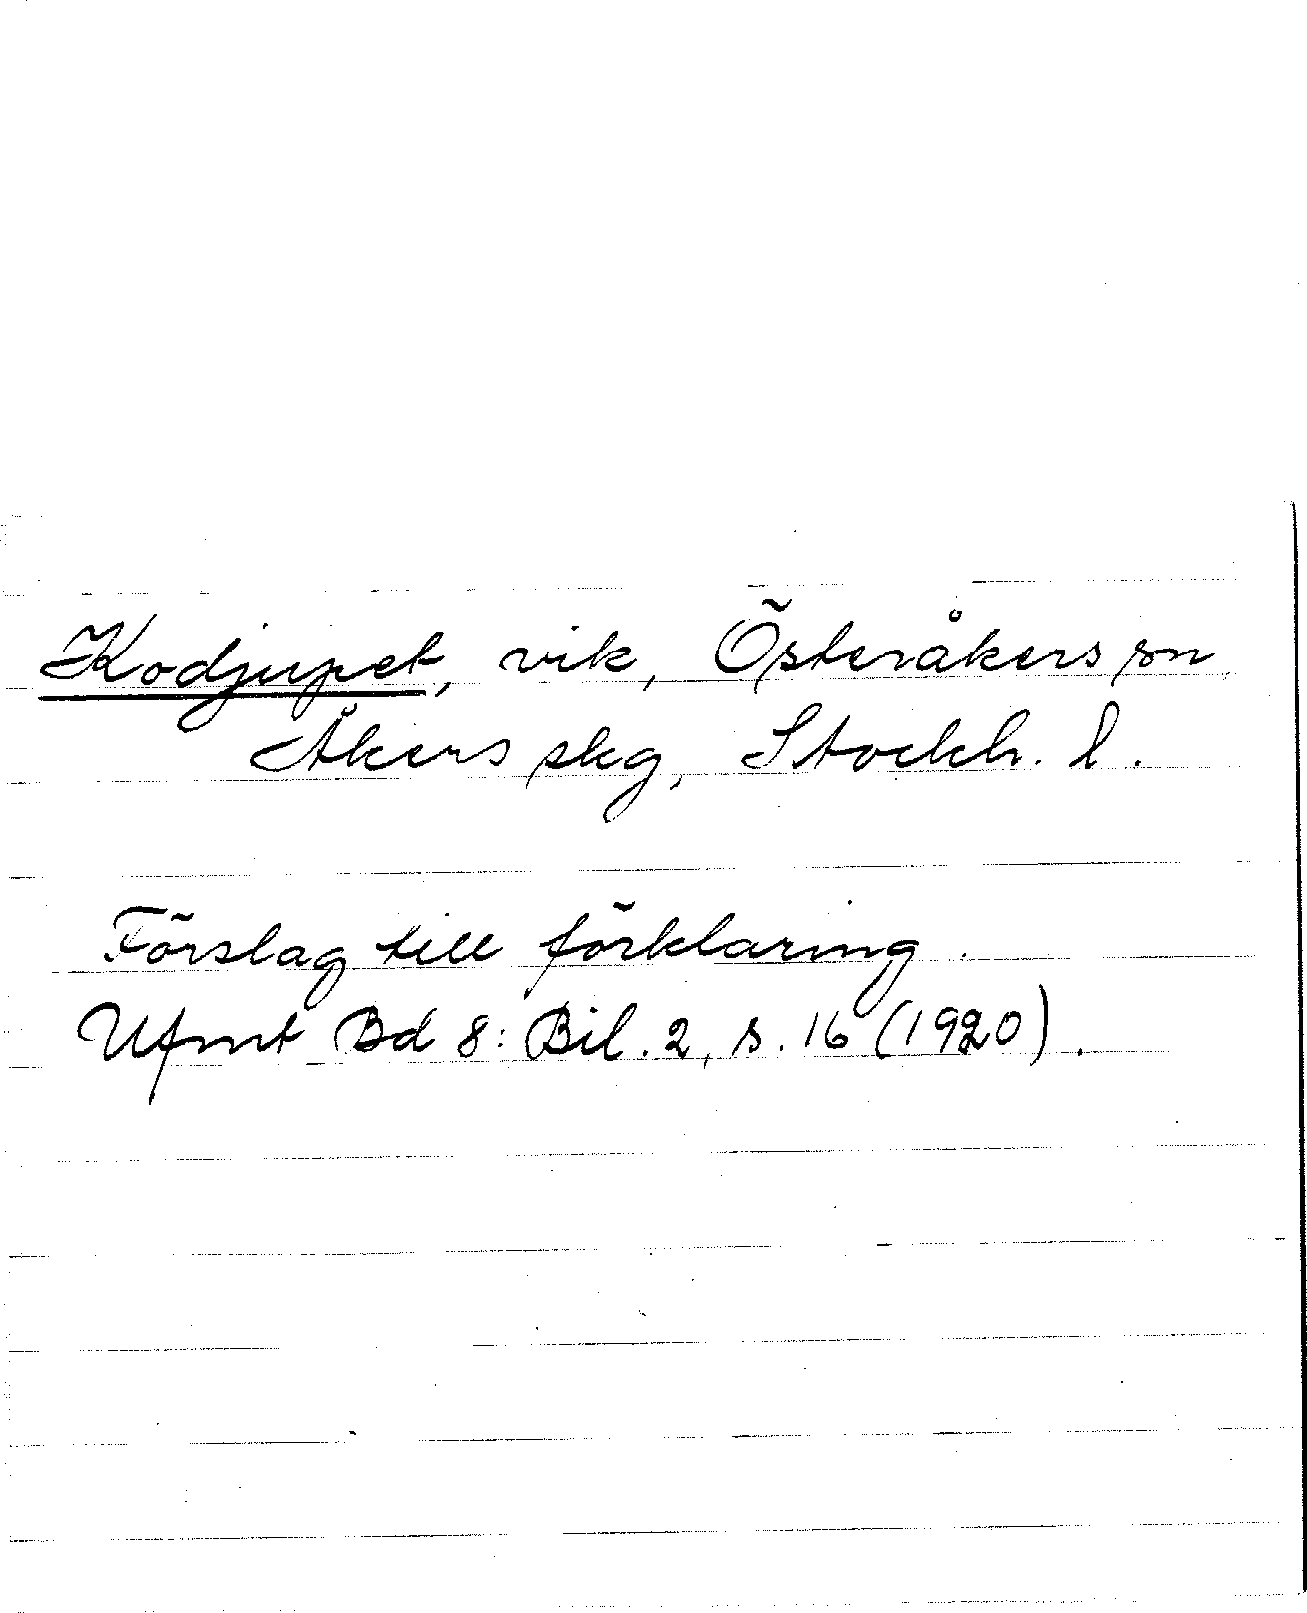 Kodjupet, vik, Österåkers sn
Åkers skg, Stockh. l.
Förslag till förklaring.
Ufmt Bd 8: Bil. 2, s. 16 (1920).